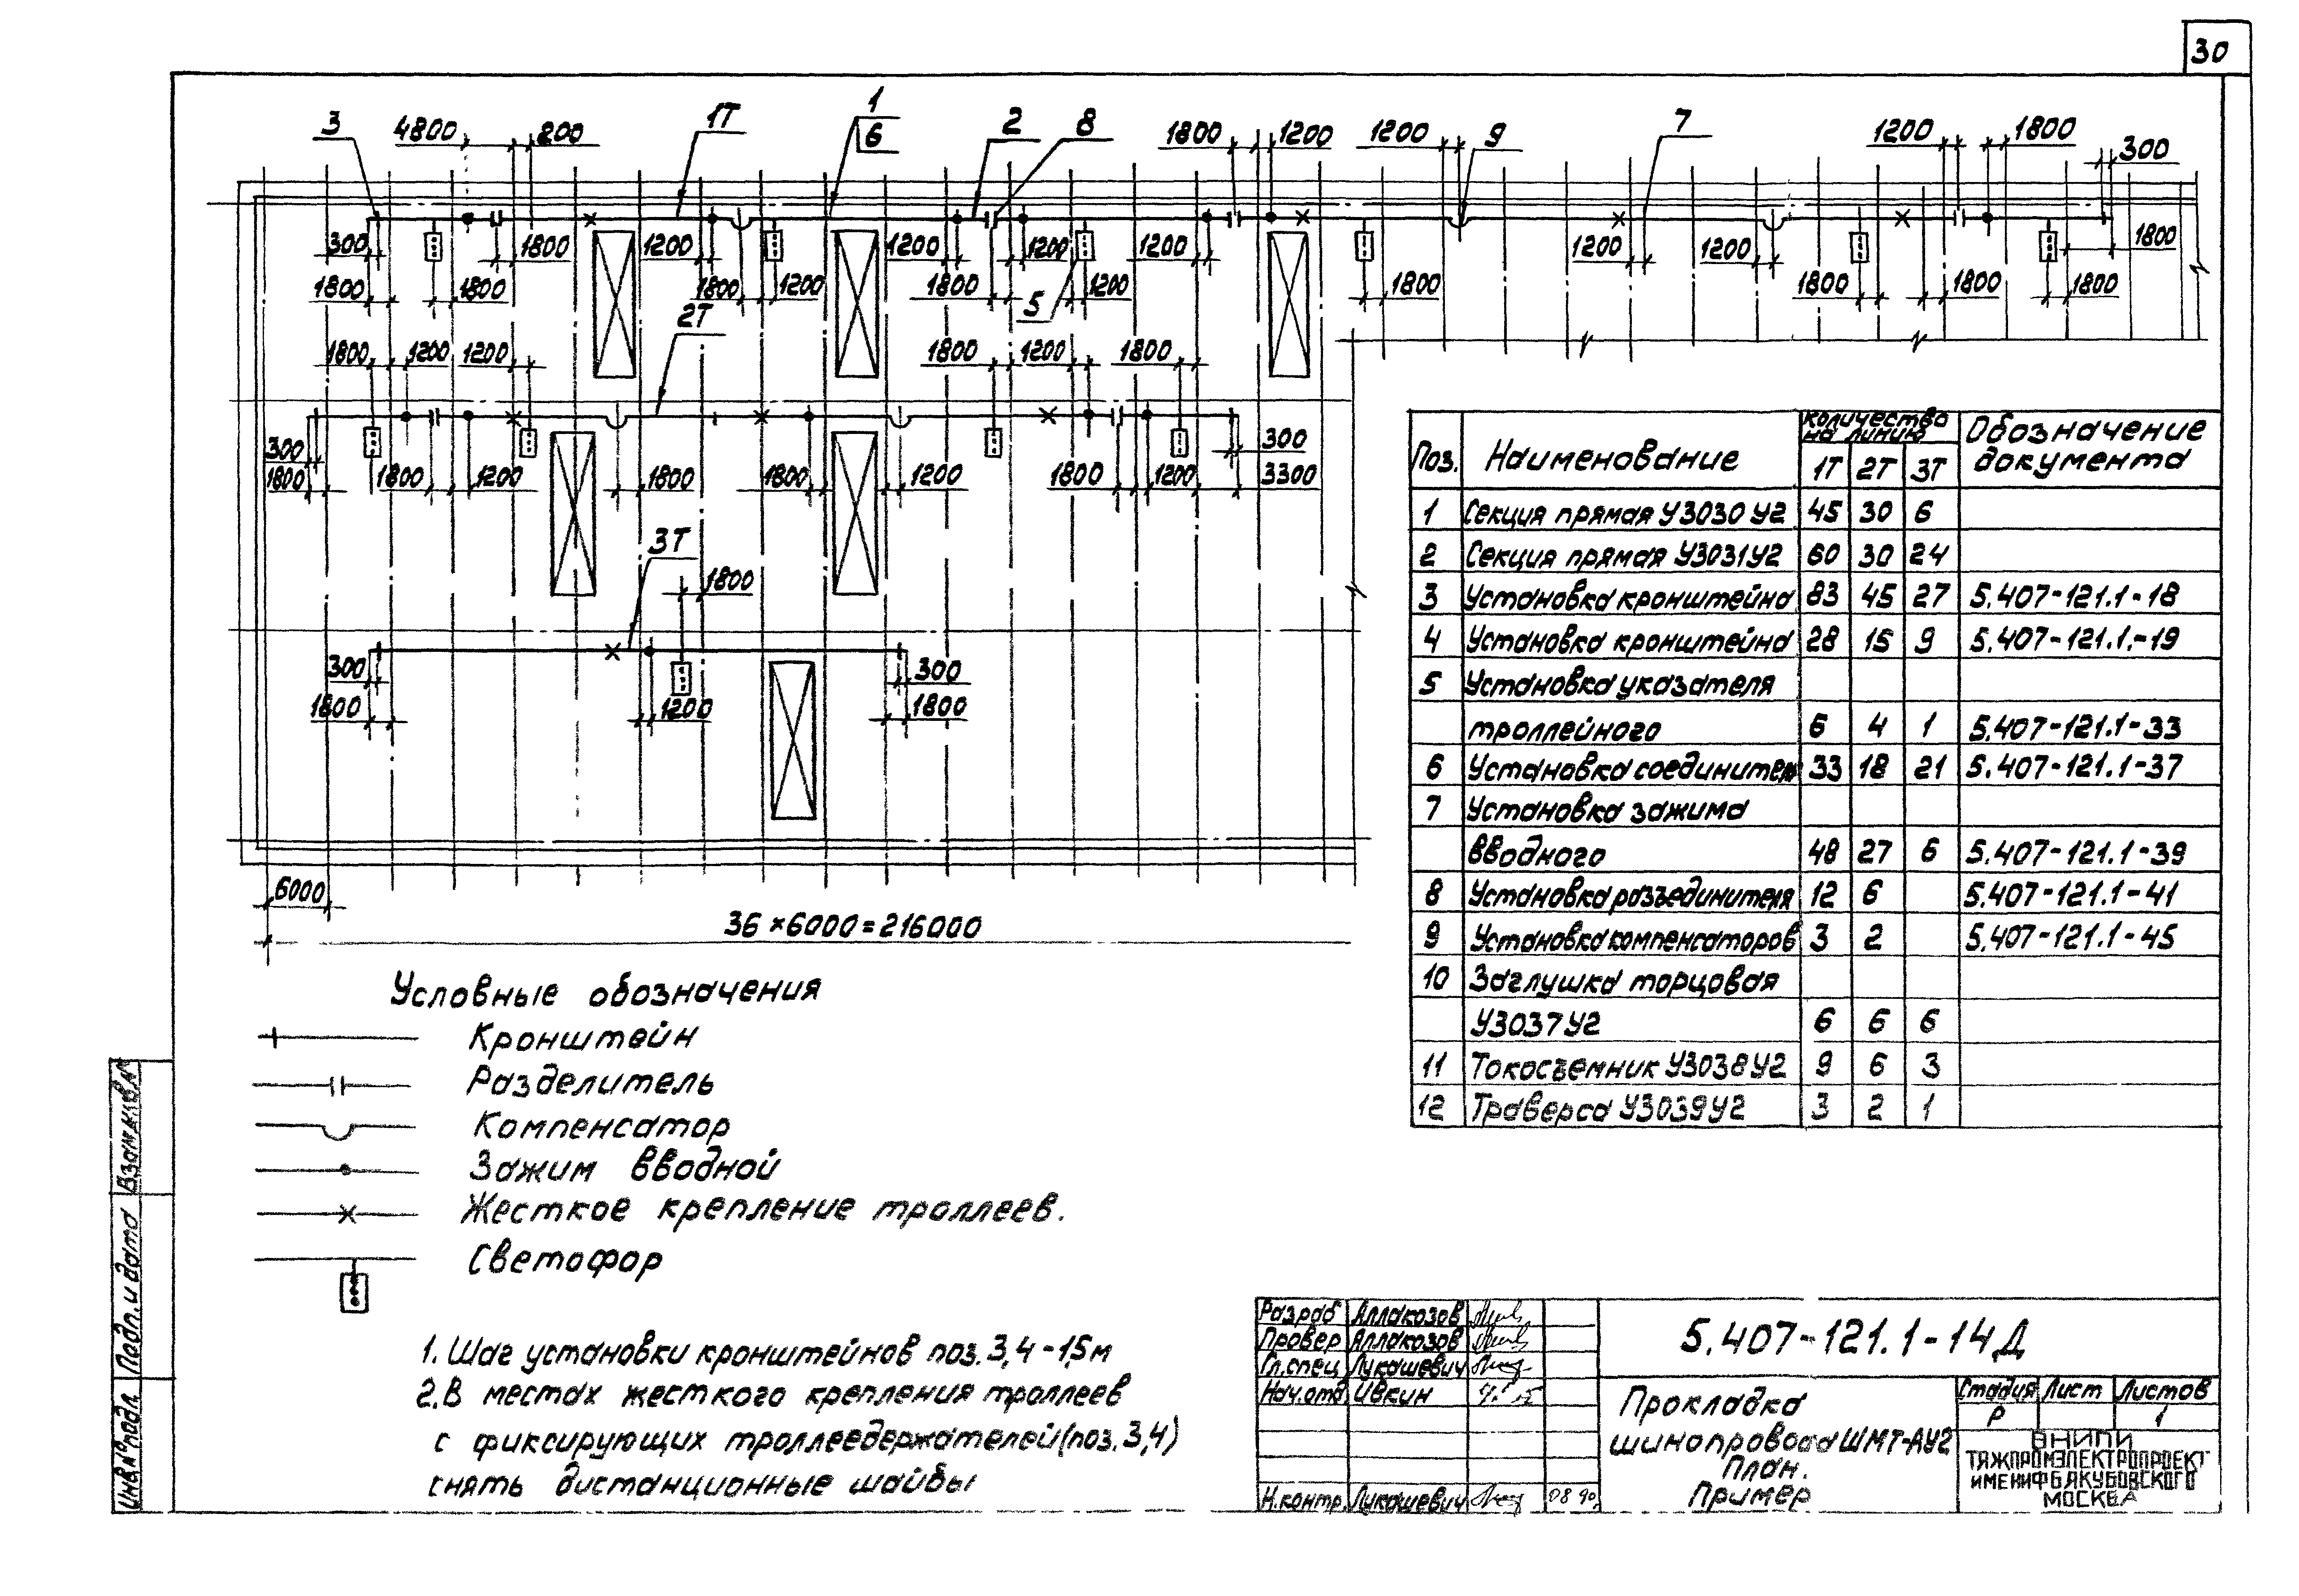 30
3 4800 200 1Т 1 6 2 8 1800 1200 1200 9 7 1200 1800 300
300 1800 1200 1200 1200 1200 1200 1200 1800
1800 1800 1800 1200 1800 5 1200 1800 1800 1800 1800
2Т
1800 1200 1200 1800 1200 1800
300 300
1800 1800 1200 1800 1800 1200 1800 1200 3300
3Т
1800
300 300
1800 1200 1800
6000
36 × 6000 = 216000
Поз. Наименование Количество на линию Обозначение документа
1Т 2Т 3Т
1 Секция прямая У3030 У2 45 30 6
2 Секция прямая У3031У2 60 30 24
3 Установка кронштейна 83 45 27 5.407-121.1-18
4 Установка кронштейна 28 15 9 5.407-121.1.-19
5 Установка указателя
троллейного 6 4 1 5.407-121.1-33
6 Установка соединителя 33 18 21 5.407-121.1-37
7 Установка зажима
вводного 48 27 6 5.407-121.1-39
8 Установка разъединителя 12 6 5.407-121.1-41
9 Установка компенсаторов 3 2 5.407-121.1-45
10 Заглушка торцовая
У3037У2 6 6 6
11 Токосъемник У3038У2 9 6 3
12 Траверса У3039У2 3 2 1
Условные обозначения
Кронштейн
Разделитель
Компенсатор
Зажим вводной
Жесткое крепление троллеев.
Светофор
1. Шаг установки кронштейнов поз. 3,4 - 1,5 м
2. В местах жесткого крепления троллеев
с фиксирующих троллеедержателей (поз. 3,4)
снять дистанционные шайбы
Разраб Аллакозов
Провер Аллакозов
Гл.спец Лукашевич
Нач.отд Ивкин
Н.контр. Лукашевич 08 90г
5.407-121.1-14Д
Прокладка
шинопровода ШМТ-АУ2
План.
Пример
Стадия Лист Листов
Р 1
ВНИПИ
ТЯЖПРОМЭЛЕКТРОПРОЕКТ
ИМЕНИ Ф.Б.ЯКУБОВСКОГО
МОСКВА
Инв.№ подл. Подп. и дата Взам.инв.№